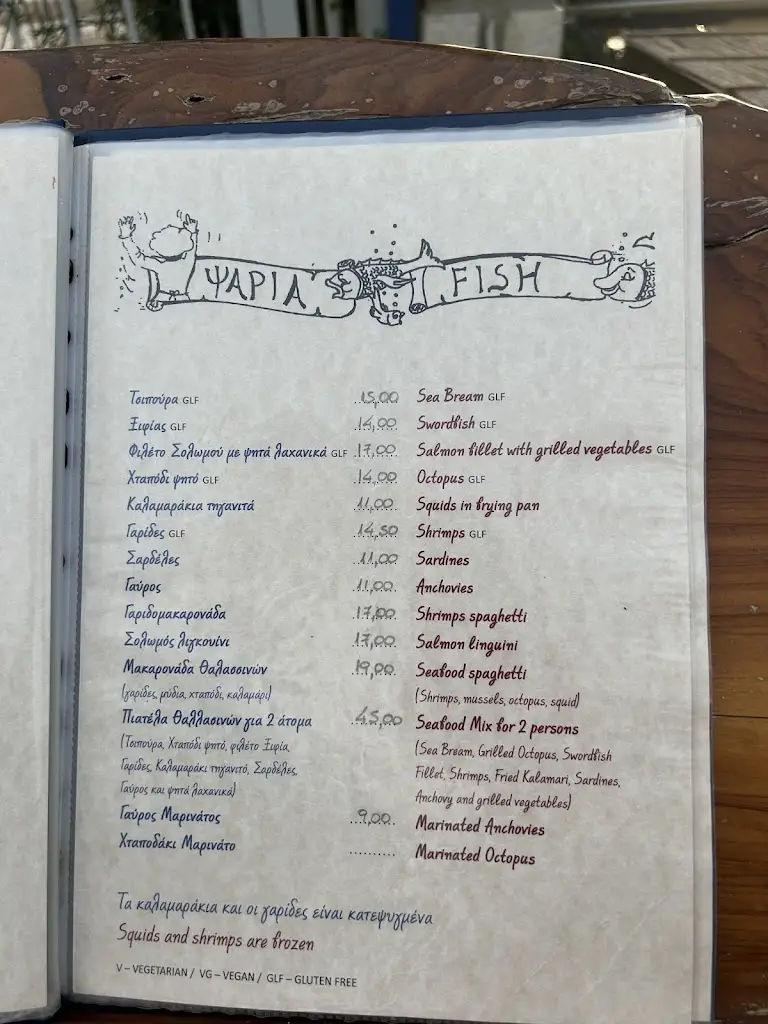 ΨΑΡΙΑ FISH
Τσιπούρα GLF 15,00 Sea Bream GLF
Ξιφίας GLF 14,00 Swordfish GLF
Φιλέτο Σολωμού με ψητά λαχανικά GLF 17,00 Salmon fillet with grilled vegetables GLF
Χταπόδι ψητό GLF 14,00 Octopus GLF
Καλαμαράκια τηγανιτά 11,00 Squids in frying pan
Γαρίδες GLF 14,50 Shrimps GLF
Σαρδέλες 11,00 Sardines
Γαύρος 11,00 Anchovies
Γαριδομακαρονάδα 17,00 Shrimps spaghetti
Σολωμός λιγκουίνι 17,00 Salmon linguini
Μακαρονάδα Θαλασσινών 19,00 Seafood spaghetti
(γαρίδες, μύδια, χταπόδι, καλαμάρι) (Shrimps, mussels, octopus, squid)
Πιατέλα Θαλλασινών για 2 άτομα 45,00 Seafood Mix for 2 persons
(Τσιπούρα, Χταπόδι ψητό, φιλέτο Ξιφία, (Sea Bream, Grilled Octopus, Swordfish
Γαρίδες, Καλαμαράκι τηγανιτό, Σαρδέλες, Fillet, Shrimps, Fried Kalamari, Sardines,
Γαύρος και ψητά λαχανικά) Anchovy and grilled vegetables)
Γαύρος Μαρινάτος 9,00 Marinated Anchovies
Χταποδάκι Μαρινάτο .......... Marinated Octopus
Τα καλαμαράκια και οι γαρίδες είναι κατεψυγμένα
Squids and shrimps are frozen
V – VEGETARIAN / VG – VEGAN / GLF – GLUTEN FREE